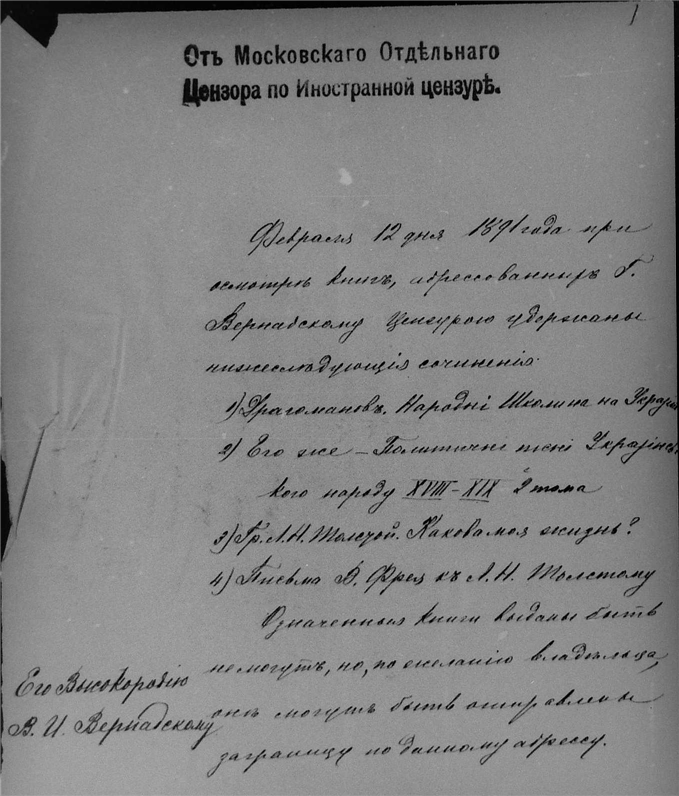 1
Отъ Московскаго Отдѣльнаго
Цензора по Иностранной цензурѣ.
Февраля 12 дня 1891 года при
осмотрѣ книгъ, адрессованныхъ Г.
Вернадскому Цензурою удержаны
нижеслѣдующія сочиненія:
1) Драгомановъ. Народні Школи на Україні
2) Его же – Политичні пісні Українсь-
кого народу XVIII–XIX 2 тома
3) Гр. Л. Н. Толстой. Какова моя жизнь?
4) Письма В. Фрея къ Л. Н. Толстому
Означенныя книги выданы быть
немогутъ, но, по желанію владѣльца,
онѣ могутъ быть отправлены
заграницу по данному адрессу.
Его Высокородію
В. И. Вернадскому